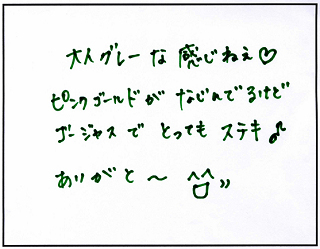 大人グレーな感じねぇ♡
ピンクゴールドがなじんでるけど
ゴージャスでとってもステキ♪
ありがと〜 ^^